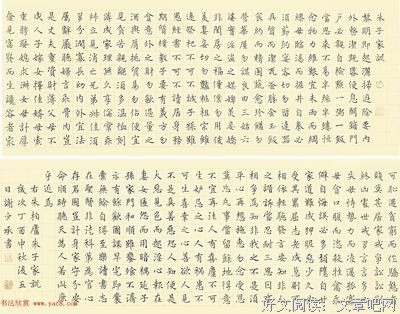 朱子家訓
黎明即起灑掃庭除要內
外整潔既昏便息關鎖門
戶必親自檢點一粥一飯
當思來處不易半絲半縷
恆念物力維艱宜未雨而綢
繆毋臨渴而掘井自奉必
須儉約宴客切勿留連器
具質而潔瓦缶勝金玉飲
食約而精園蔬愈珍饈勿
營華屋勿謀良田三姑六
婆實淫盜之媒婢美妾嬌
非閨房之福奴僕勿用俊
美妻妾切勿豔粧祖宗雖
遠祭祀不可不誠子孫雖
愚經書不可不讀居身務
期質樸教子要有義方勿
貪意外之財勿飲過量之
酒與肩挑貿易勿佔便宜
見貧苦親鄰須多溫恤刻
薄成家理無久享倫常乖
舛立見消亡兄弟叔姪須
多分潤寡長幼內外宜法
屬辭嚴聽婦言乖骨肉豈
是丈夫重貲財薄父母不
成人子嫁女擇佳婿毋索
重聘娶媳求淑女毋計厚
奩見富貴而生讒容者最
可恥遇貧窮而作驕態者
賤莫甚居家戒爭訟訟則
終凶處世戒多言言多必
失毋恃勢力而凌逼孤寡
勿貪口腹而恣殺牲禽乖
僻自是悔誤必多頹惰自甘
家道難成狎暱惡少久必
受其累屈志老成急則可
相依輕聽發言安知非人
之譖愬當忍耐三思因事
相爭安知非我之不是須
平心暗想施惠勿念受恩
莫忘凡事當留餘地得意
不宜再往人有喜慶不可
生妒忌心人有禍患不可
生喜幸心善欲人見
不是真善惡恐人知便是
大惡見色而起淫心報在
妻女匿怨而用暗箭禍延子
孫家門和順雖饔飧不繼
亦有餘歡國課早完即囊
橐無餘自得至樂讀書志
在聖賢為官心
存君國守分安
命順時聽天為人若此庶
乎近焉
右朱柏廬朱子家訓
歲次丁酉中秋後五
日謝少承書
书法欣赏 www.yac8.com
好文阅读：文章吧网